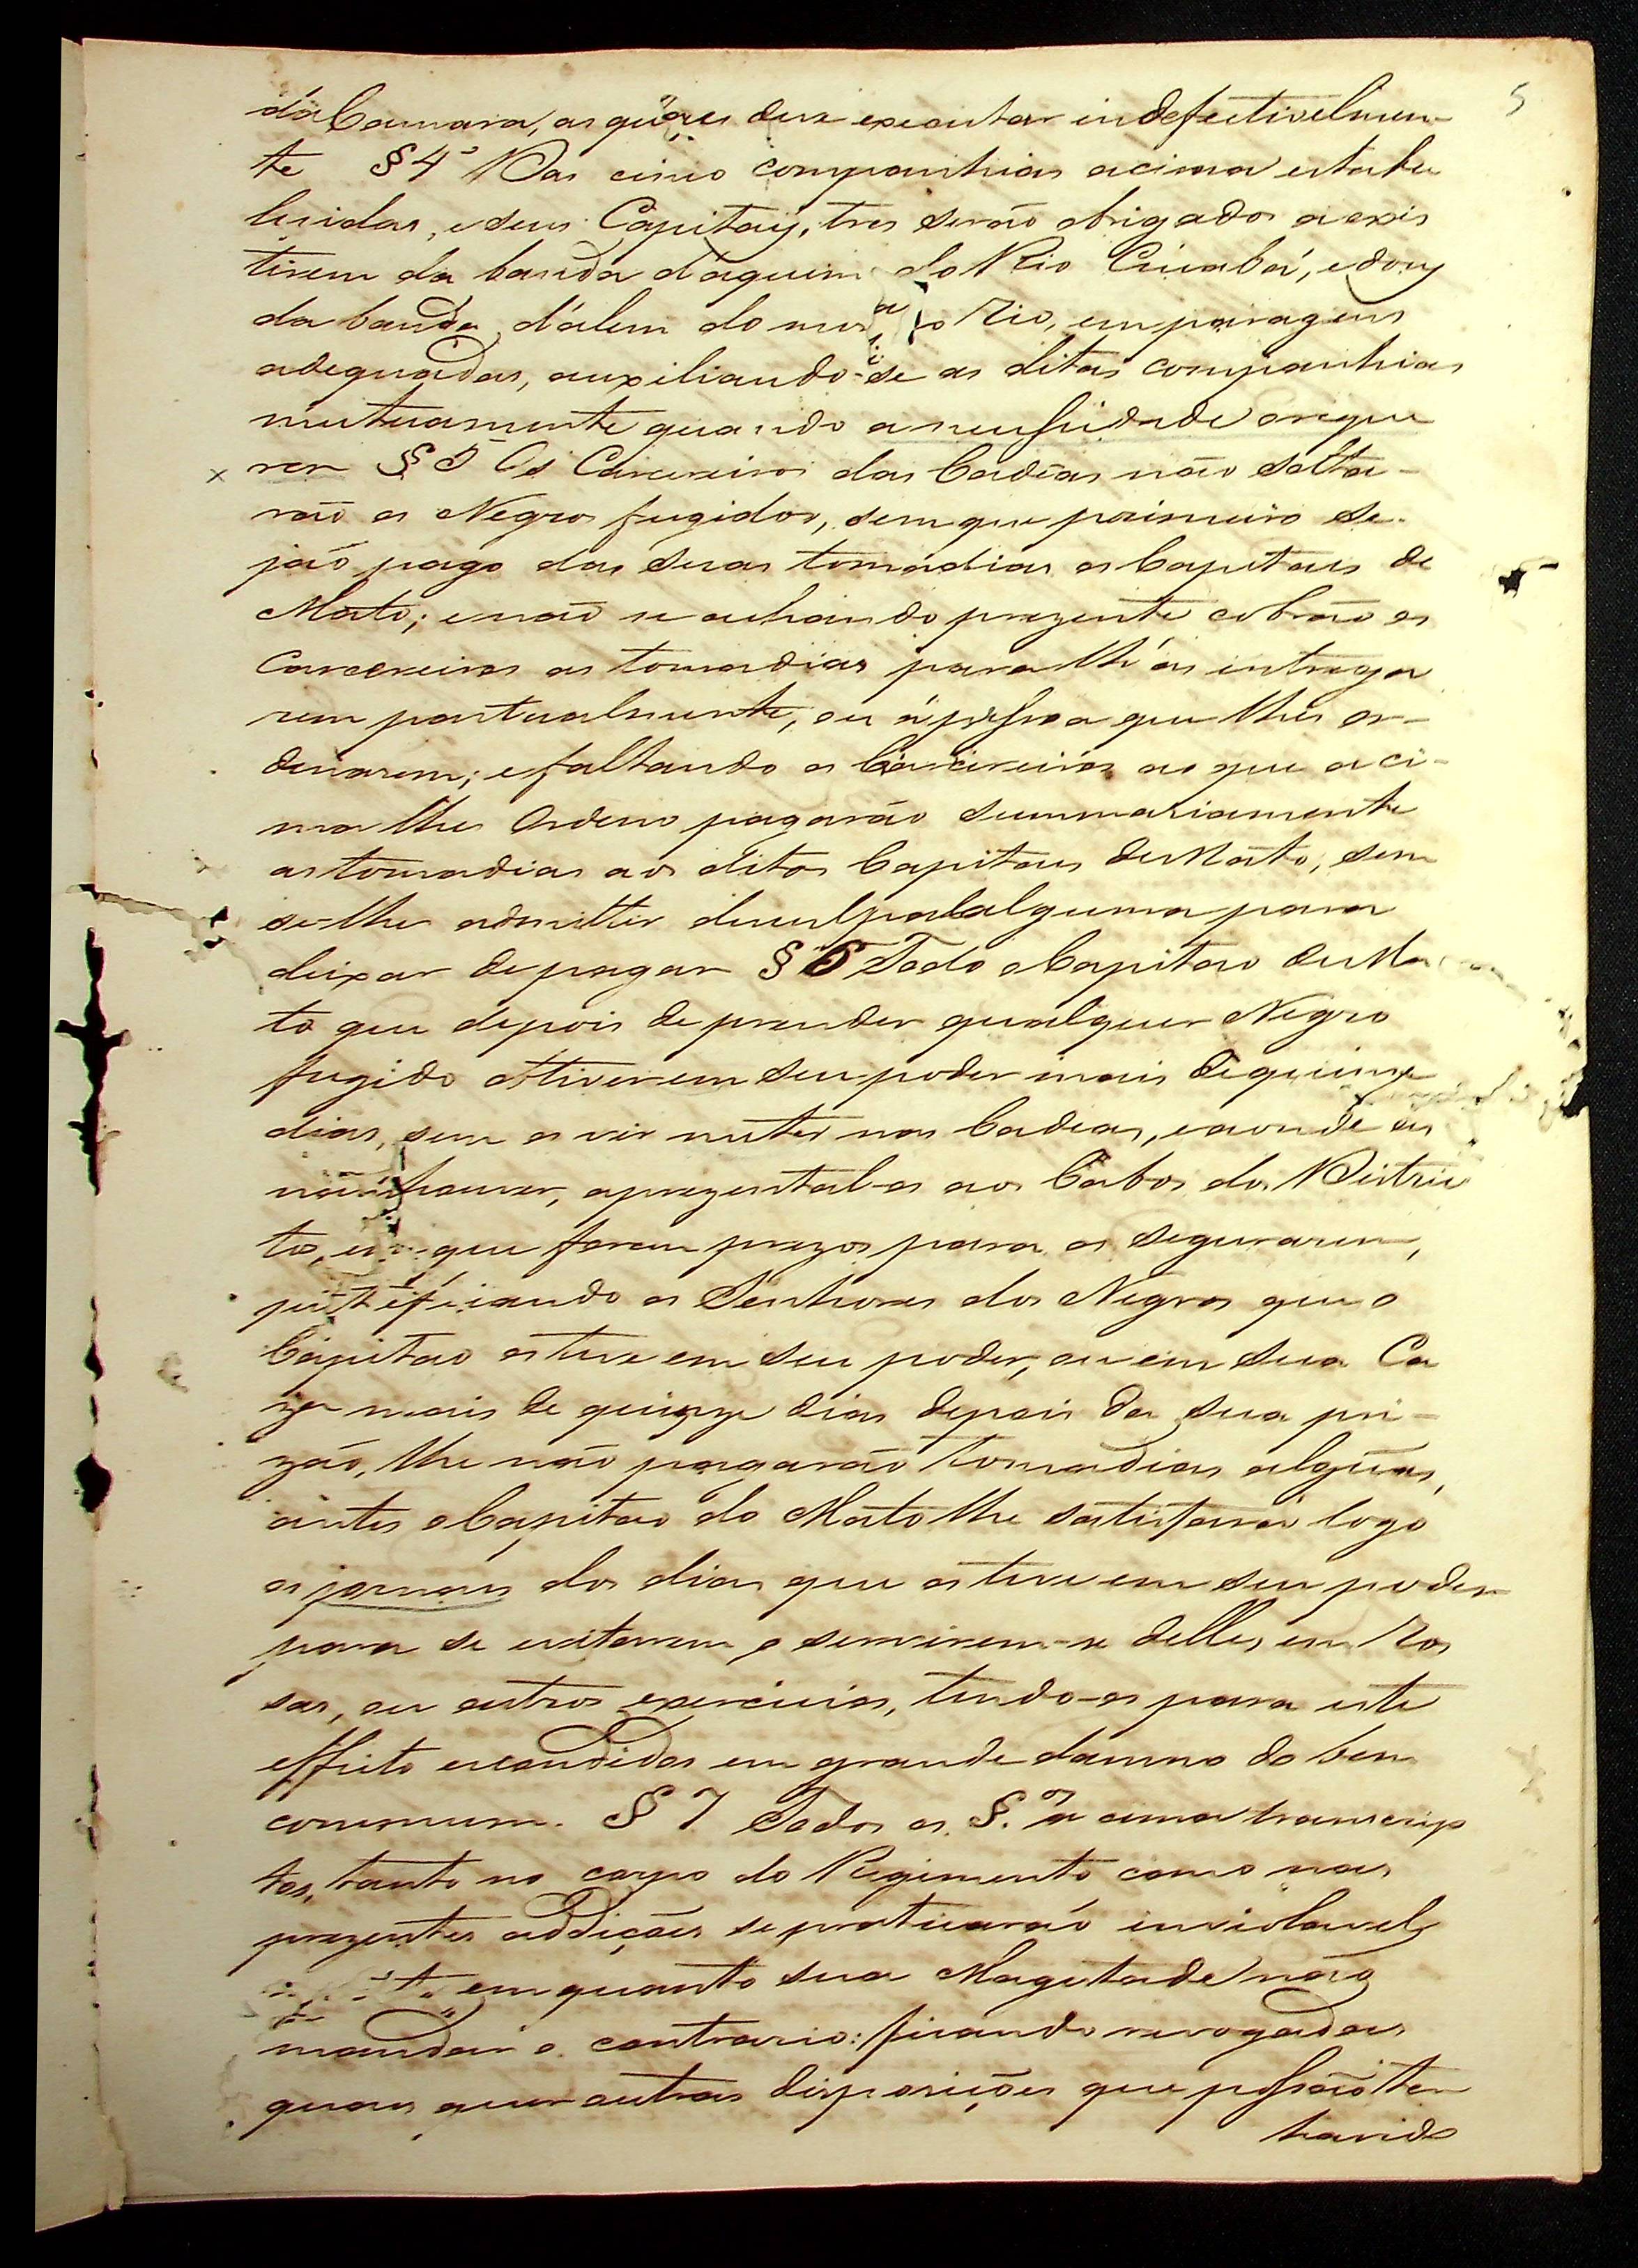 5
da Camara, as quaes deve executar indefectivelmen-
te § 4º Das cinco companhias acima estabe
lecidas, e seus Capitaẽs, tres serão obrigados a exis
tirem da banda d'aquem do Rio Cuiabá, e dous
da banda d'alem do mesmo Rio, em paragens
adequadas, auxiliando-se as ditas companhias
mutuamente quando a necessidade o reque
rer § 5 Os Carcereiros das Cadêas não solta-
raõ os Negros fugidos, sem que primeiro se-
jaõ pago das suas tomadias os Capitaes de
Mato; e não se achando prezente cobrão os
Carcereiros as tomadias para lh'as intrega
rem pontualmente, ou á pessoa que lhes or-
denarem; e faltando os Carcereiros ao que aci-
ma lhes Ordeno pagarão summariamente
as tomadias aos ditos Capitaes de Mato, sem
se-lhe admittir desculpa alguma para
deixar de pagar § 6 Todo o Capitão de Ma
to que depois de prender qualquer Negro
fugido o tiver em seu poder mais de quinze
dias, sem os vir meter nas Cadeas, e aonde as
não houver, aprezental-os aos Cabos do Distric
to, em que foram prezos para os segurarem,
justificando os Senhores dos Negros que o
Capitão os teve em seu poder, ou em sua Ca
za mais de quinze dias depois da sua pri-
zão, lhe não pagarão tomadias algũas,
antes o Capitão do Mato lhe satisfará logo
os jornaes dos dias que os teve em seu poder
para se evitarem o servirem-se delles em ros
sas, ou outros exercicios, tendo-os para este
effeito escondidos em grande damno do bem
commum. § 7 Todos os §.ºˢ a cima transcrip
tos, tanto no corpo do Regimento como nas
prezentes addições se praticarão inviolavel
emquanto sua Magestade não
mandar o contrario: ficando revogadas
quaes quer outras disposições que possão ter
havido